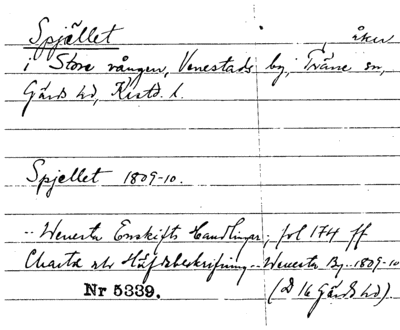 Spjället åker
i Stora vången, Venestads by, Träne sn,
Gärds hd, Kristd. l.
Spjellet 1809-10.
.. Wenesta Enskifts Handlingar, fol 174 ff
Charta och Häfdebeskrifning .. Wenesta By.. 1809-10
Nr 5339. (D 16 Gärds hd)